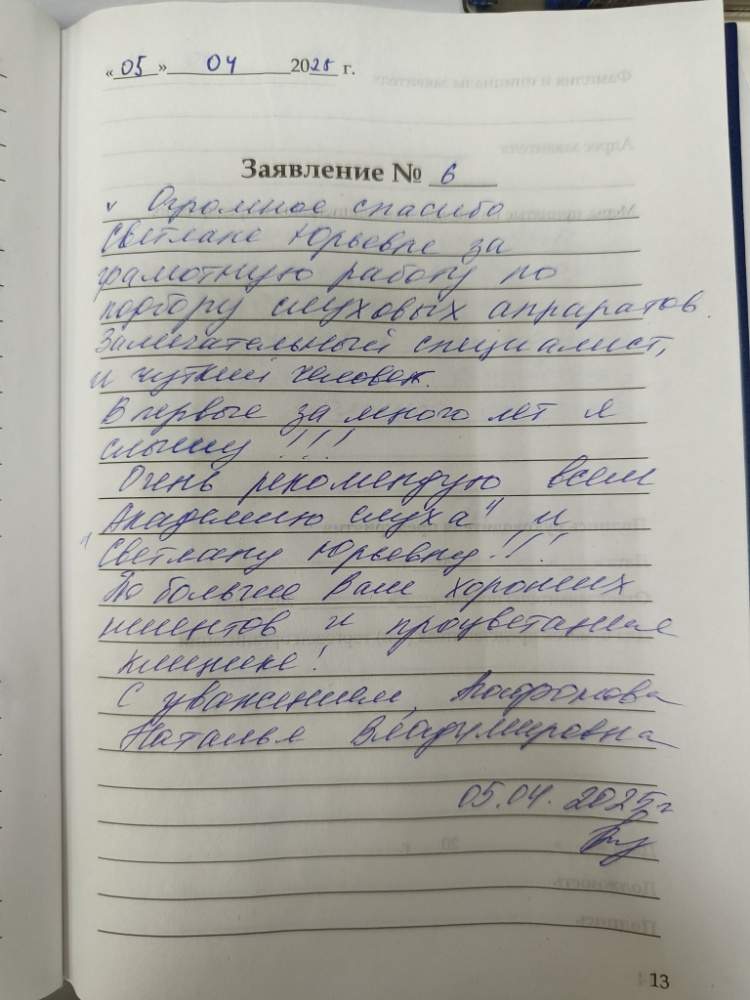 «05» 04 2025 г.
Заявление № 6
Огромное спасибо
Светлане Юрьевне за
грамотную работу по
подбору слуховых аппаратов.
Замечательный специалист,
и чуткий человек.
Впервые за много лет я
слышу !!!
Очень рекомендую всем
"Академию слуха" и
Светлану Юрьевну!!!
По больше Вам хороших
клиентов и процветания
клинике!
С уважением,
Наталья Владимировна
05.04.2025г
13